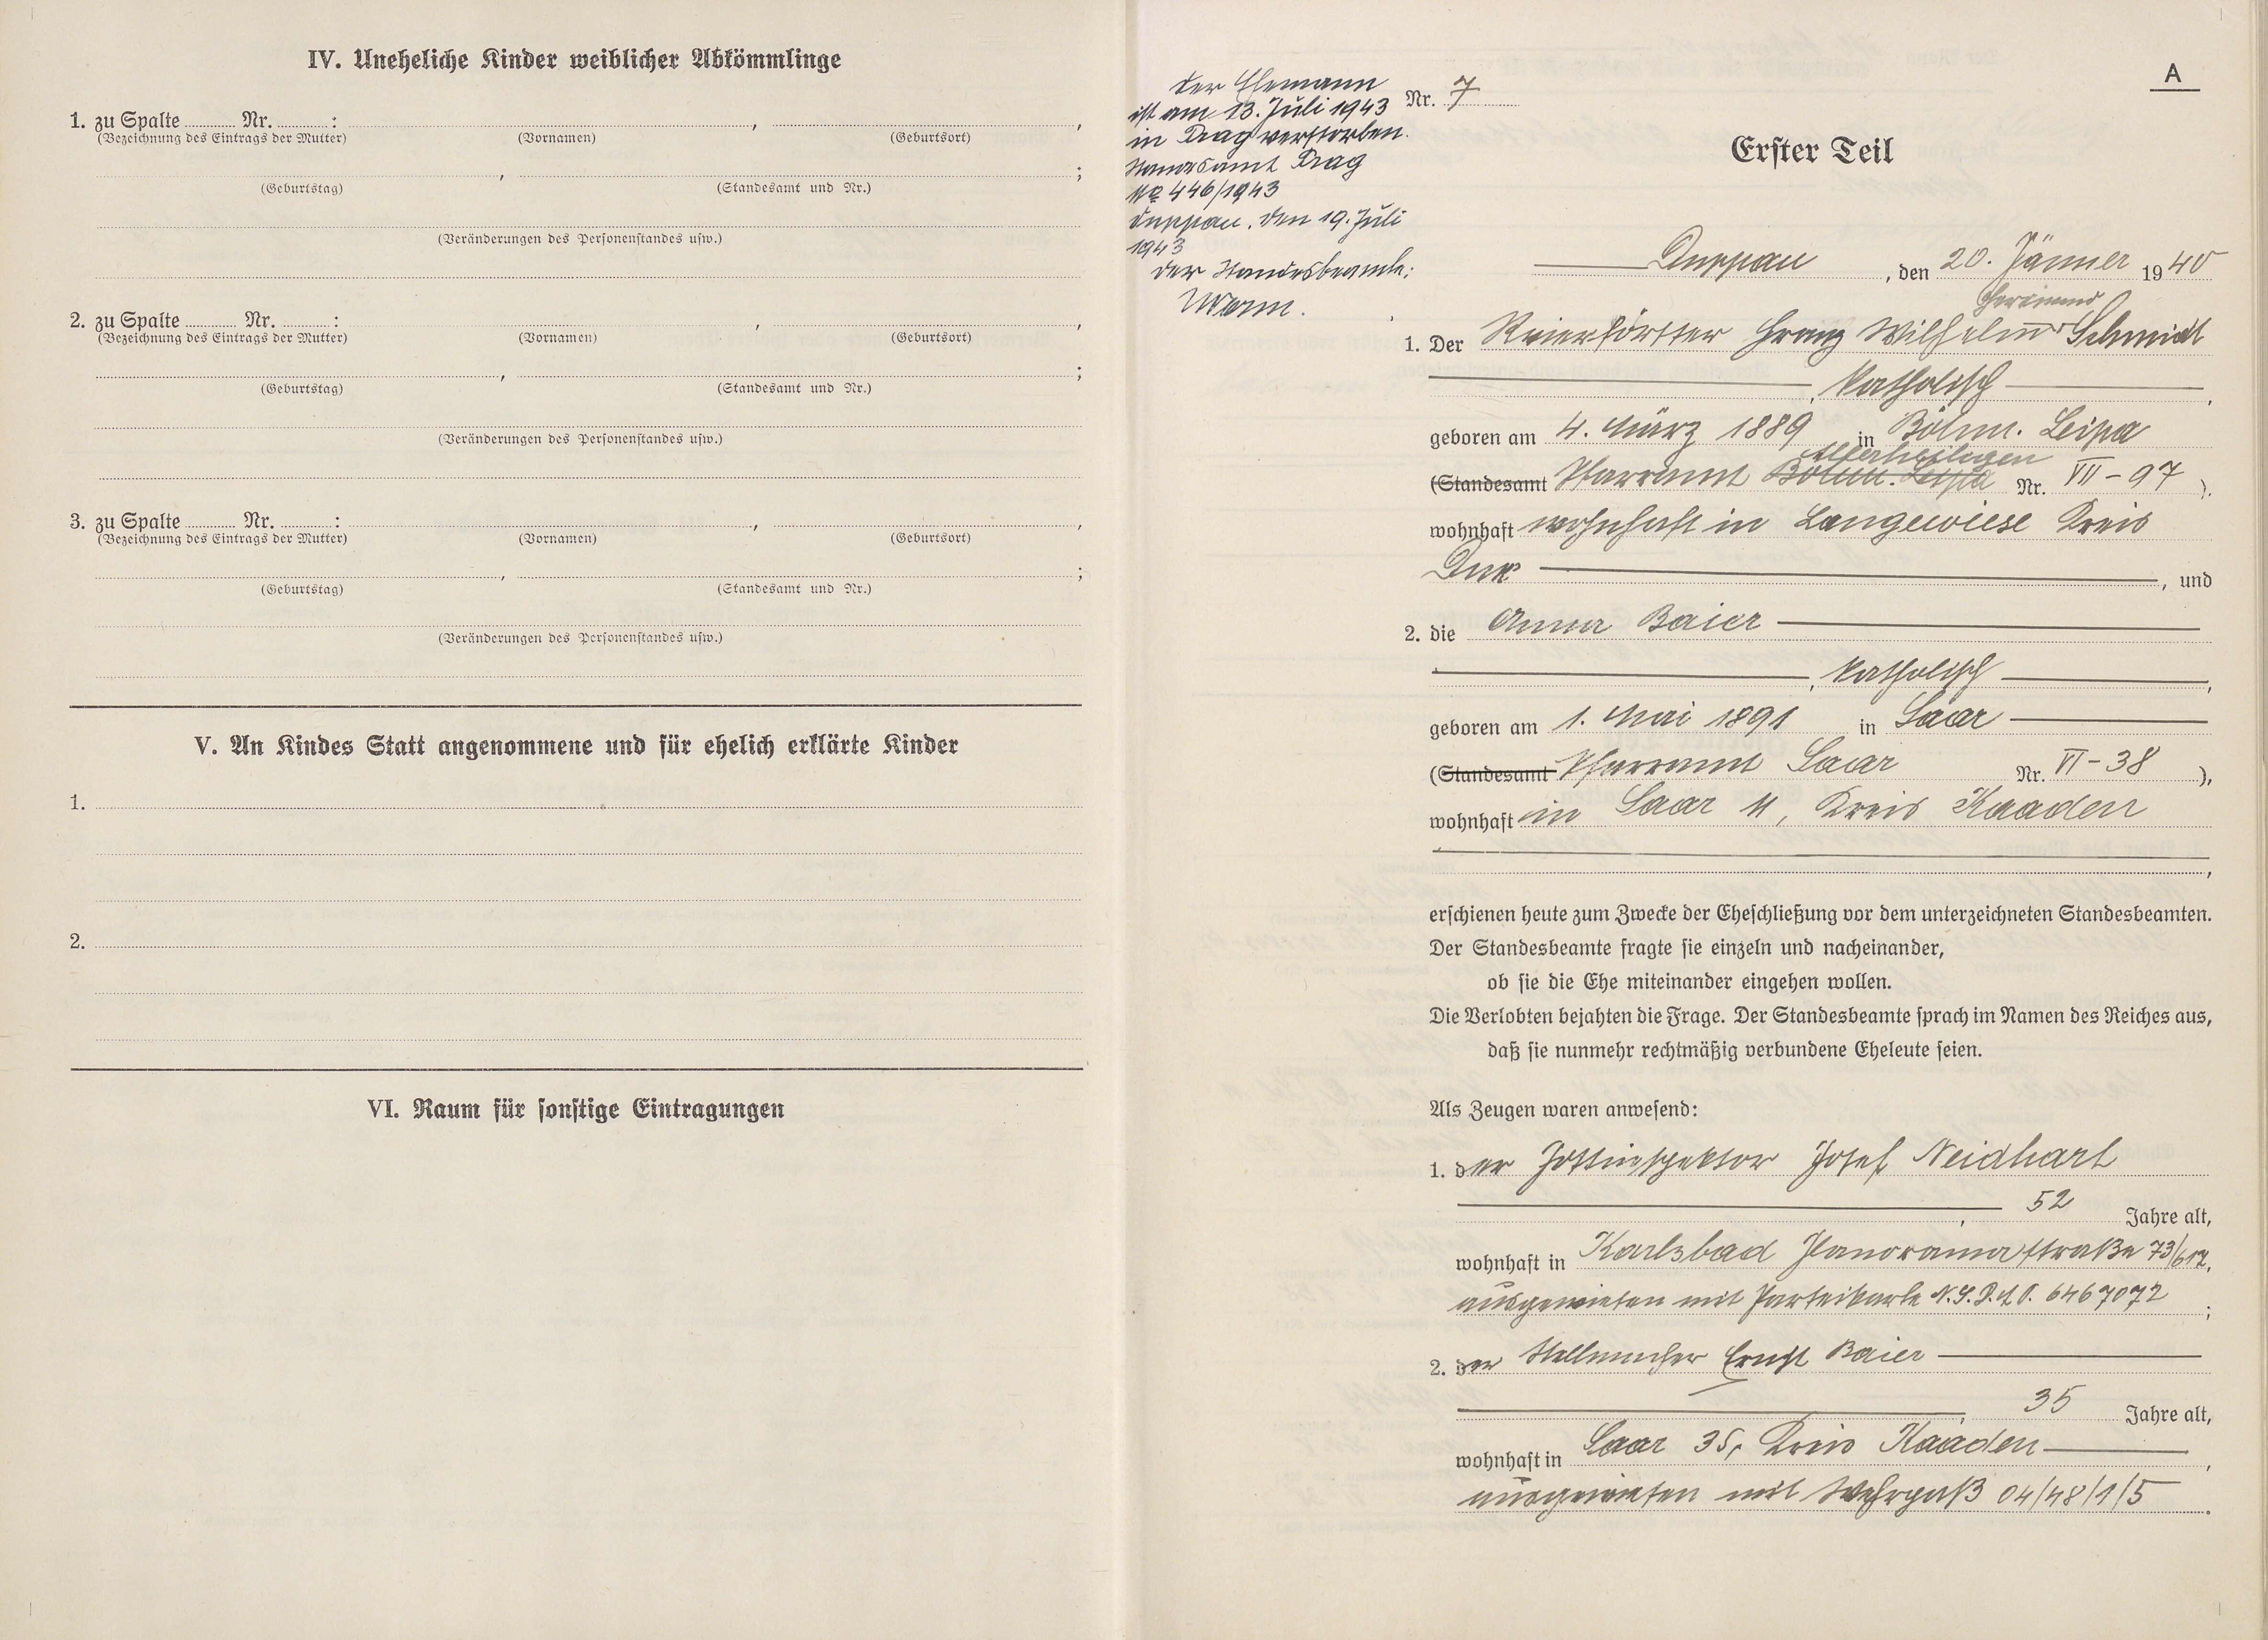 IV. Uneheliche Kinder weiblicher Abkömmlinge
1. zu Spalte ........ Nr. ........ : , ,
(Bezeichnung des Eintrags der Mutter) (Vornamen) (Geburtsort)
, ;
(Geburtstag) (Standesamt und Nr.)
(Veränderungen des Personenstandes usw.)
2. zu Spalte ........ Nr. ........ : , ,
(Bezeichnung des Eintrags der Mutter) (Vornamen) (Geburtsort)
, ;
(Geburtstag) (Standesamt und Nr.)
(Veränderungen des Personenstandes usw.)
3. zu Spalte ........ Nr. ........ : , ,
(Bezeichnung des Eintrags der Mutter) (Vornamen) (Geburtsort)
, ;
(Geburtstag) (Standesamt und Nr.)
(Veränderungen des Personenstandes usw.)
V. An Kindes Statt angenommene und für ehelich erklärte Kinder
1.
2.
VI. Raum für sonstige Eintragungen
A
Nr. 7
der Ehemann
ist am 13. Juli 1943
in Prag verstorben.
Standesamt Prag
Nr. 446/1943
Duppau, den 19. Juli
1943
der Standesbeamte:
Erster Teil
Duppau, den 20. Jänner 1940
Ferdinand
1. Der Revierförster Franz Wilhelm Schmidt
, katholisch ,
geboren am 4. März 1889 in Böhm. Leipa
Allerheiligen
(Standesamt Pfarramt Böhm. Leipa Nr. VII - 97 ),
wohnhaft wohnhaft in Langewiese Kreis
Dux , und
2. die Anna Baier
, katholisch ,
geboren am 1. Mai 1891 in Saar
(Standesamt Pfarramt Saar Nr. VI - 38 ),
wohnhaft in Saar 11, Kreis Kaaden
,
erschienen heute zum Zwecke der Eheschließung vor dem unterzeichneten Standesbeamten.
Der Standesbeamte fragte sie einzeln und nacheinander,
ob sie die Ehe miteinander eingehen wollen.
Die Verlobten bejahten die Frage. Der Standesbeamte sprach im Namen des Reiches aus,
daß sie nunmehr rechtmäßig verbundene Eheleute seien.
Als Zeugen waren anwesend:
1. der Postinspektor Josef Neidhart
, 52 Jahre alt,
wohnhaft in Karlsbad Panoramastraße 73/612,
ausgewiesen mit Parteikarte N.S.D.A.P. 6467072 ;
2. der Stellmacher Ernst Baier
35 Jahre alt,
wohnhaft in Saar 35, Kreis Kaaden ,
ausgewiesen mit Wehrpaß 04/48/1/5 .